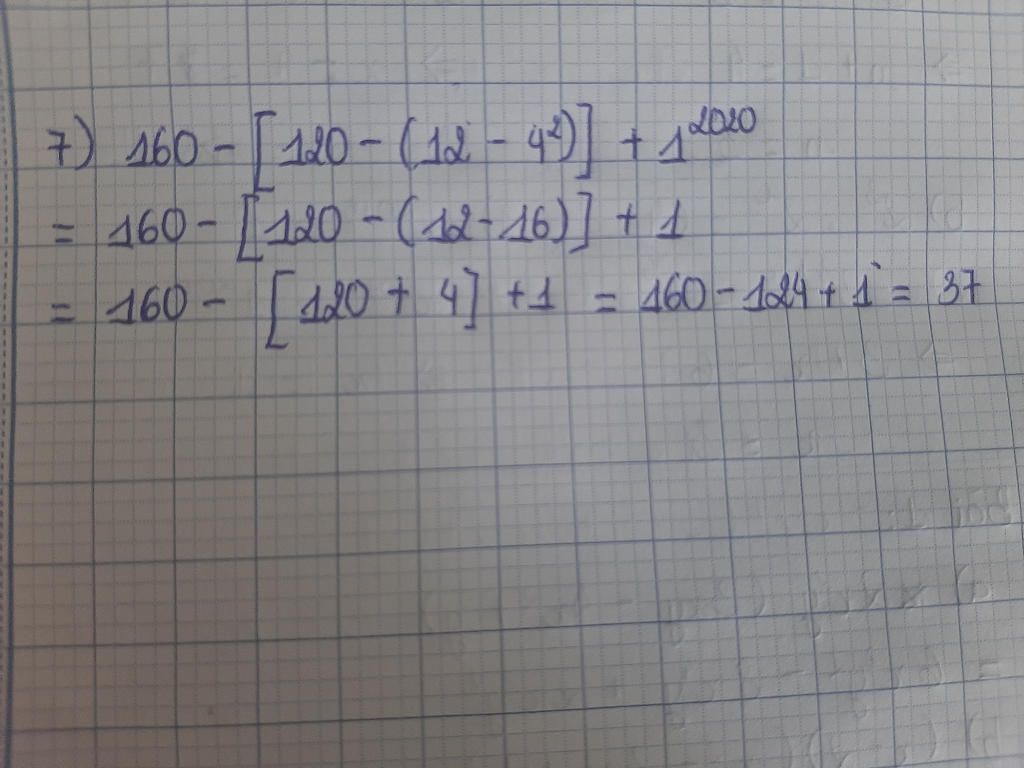 7) 160 - [120 - (12 - 4²)] + 1²⁰²⁰
= 160 - [120 - (12 - 16)] + 1
= 160 - [120 + 4] + 1 = 160 - 124 + 1 = 37